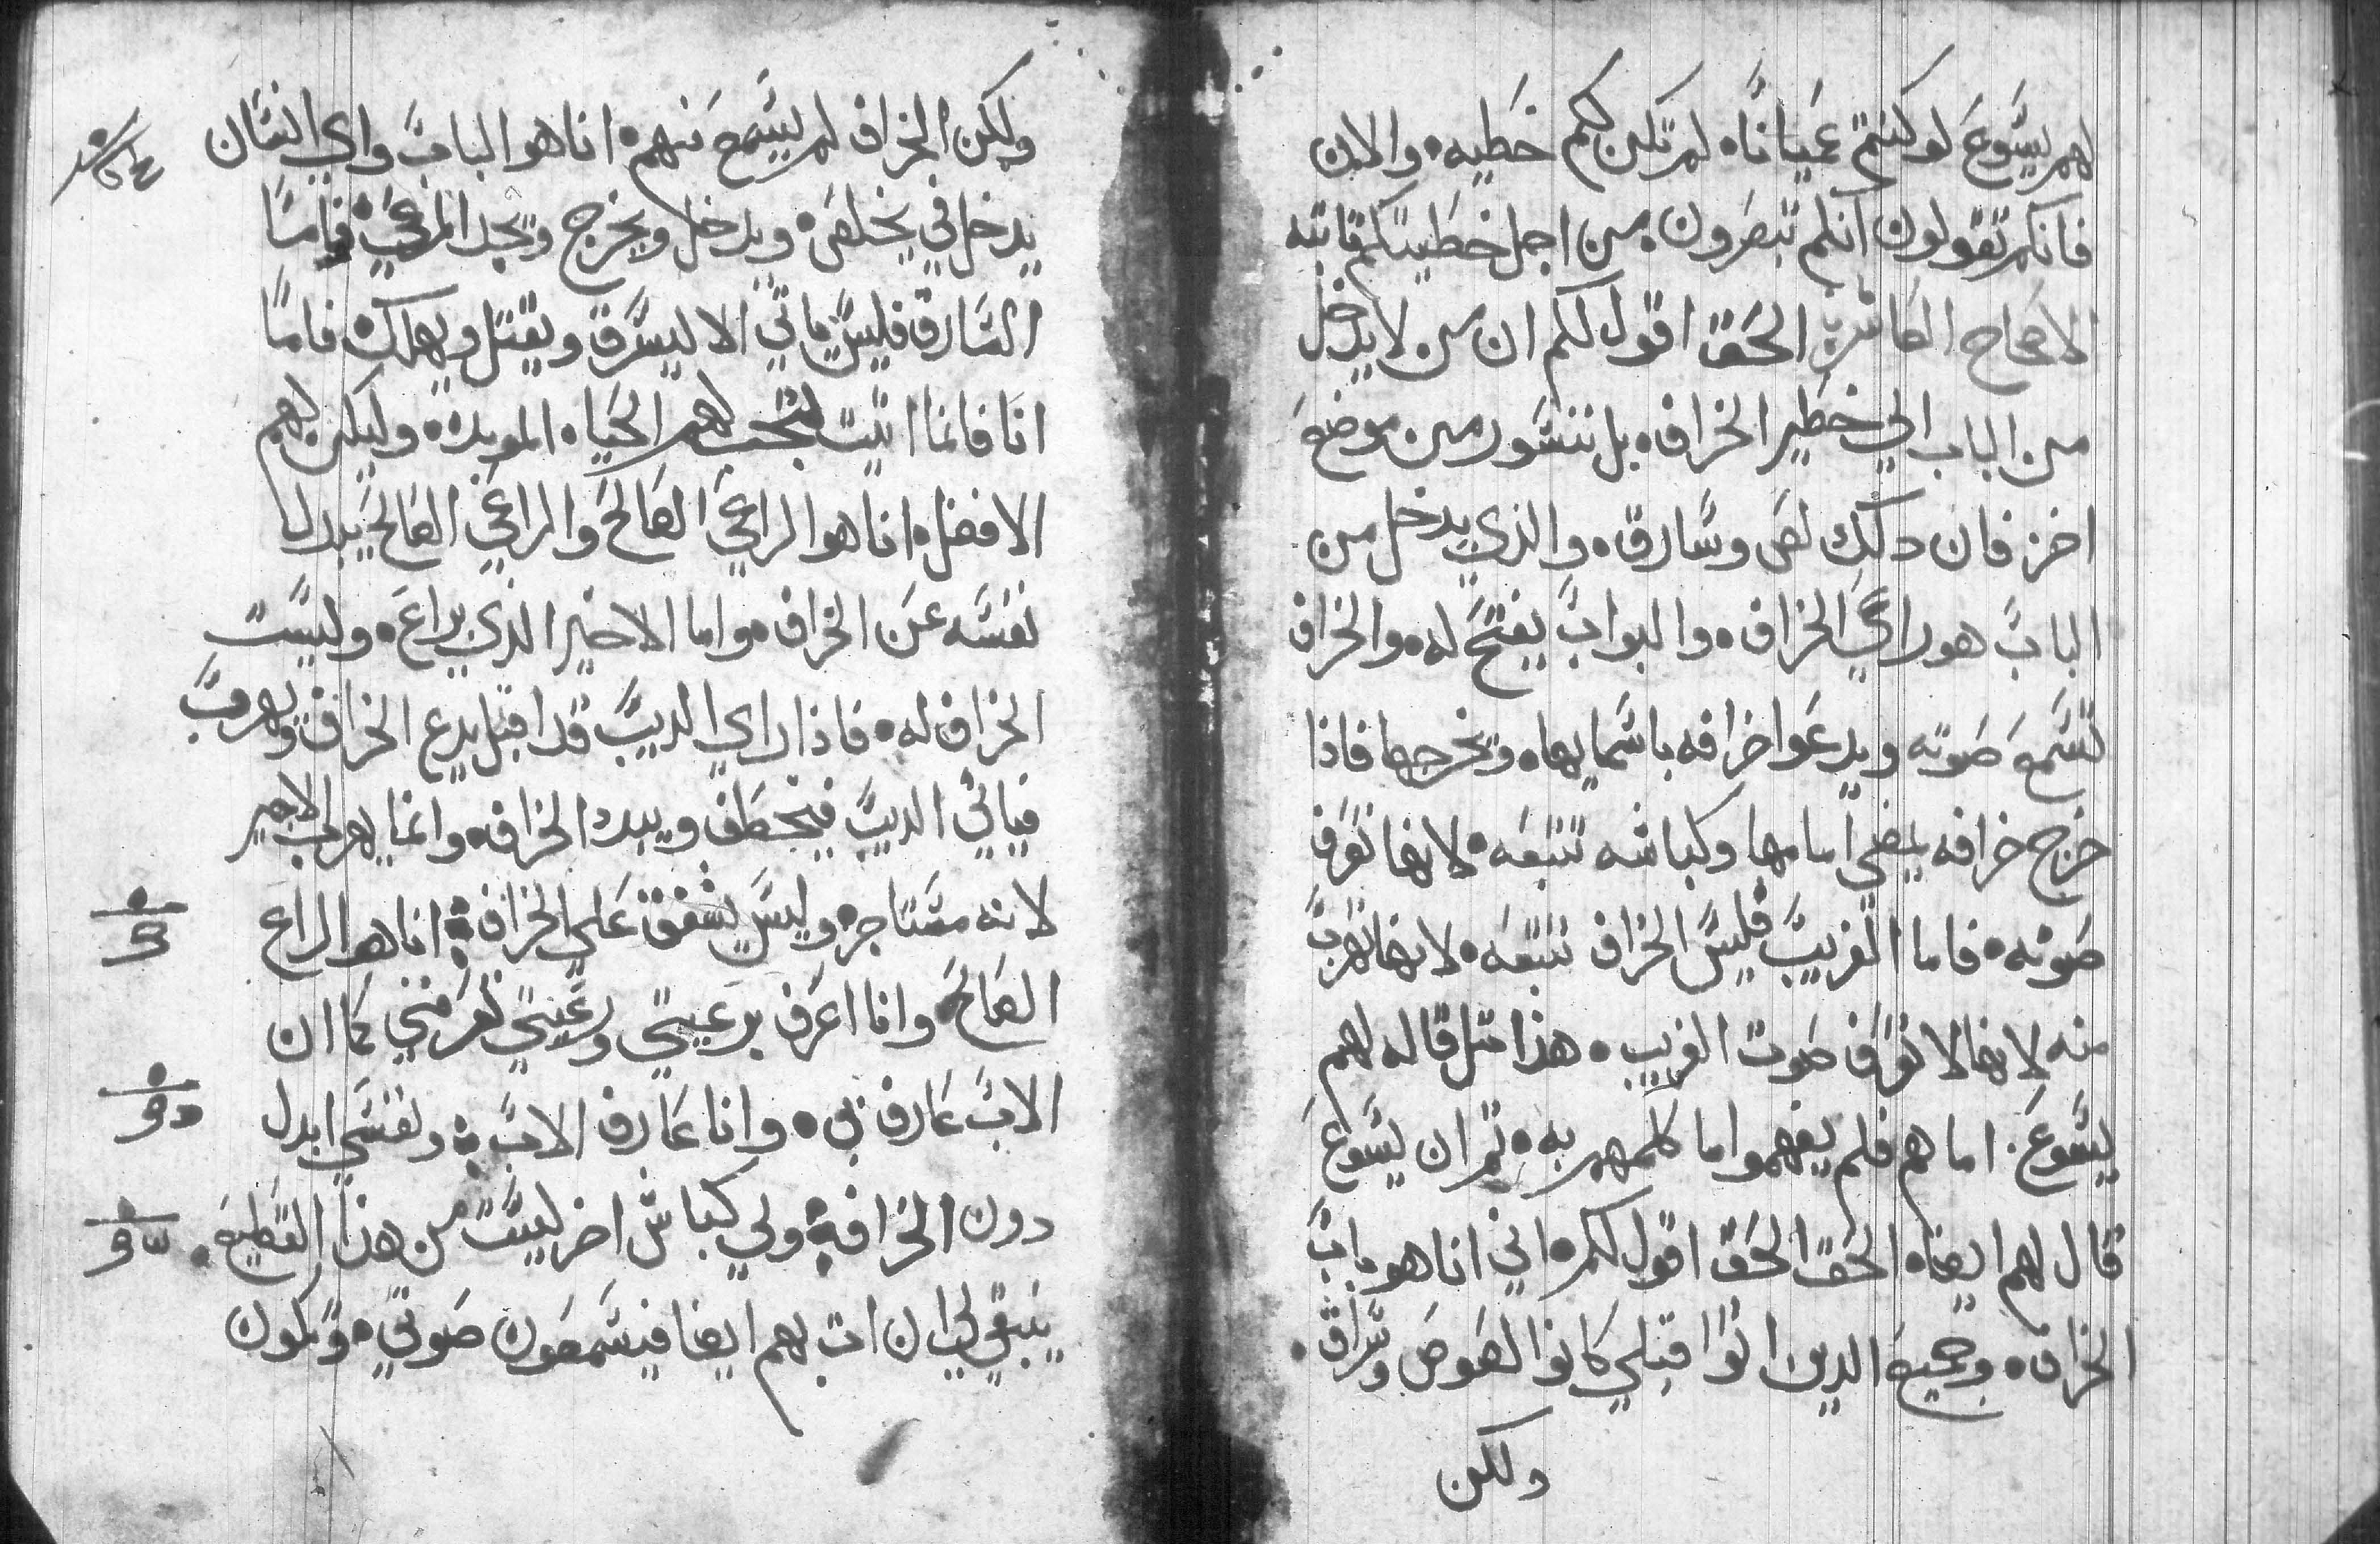 لهم يسوع لو كنتم عميانا، لم تكن لكم خطيه، والان
فانكم تقولون انكم تبصرون، من اجل خطيتكم ثابته
الاصحاح العاشر الحق اقول لكم ان من لا يدخل
من الباب الي خطير الخراف، بل نتسور من موضع
اخر فان دلك لص وسارق، والذي يدخل من
الباب هو راعي الخراف، والبواب يفتح له، والخراف
تسمع صوته ويدعوا خرافه باسمايها، ويخرجها فاذا
خرج خرافه يمضي امامها وكباشه تتبعه، لانها تعرف
صوته، فاما الغريب فليس الخراف تتبعه، لانها تهرب
منه لانها لا تعرف صوت الغريب، هذا مثل قاله لهم
يسوع، اما هم فلم يفهموا ما كلمهم به، ثم ان يسوع
قال لهم ايضا، الحق الحق اقول لكم، اني انا هو باب
الخراف، وجميع الدين اتوا قبلي كانوا لصوص وسراق،
ولكن
ولكن الخراف لم يسمع منهم، انا هو الباب واي انسان
يدخل في يخلص، ويدخل ويخرج ويجد المرعي، فاما
السارق فليس ياتي الا ليسرق ويقتل ويهلك، فاما
انا فانما اتيت لتجب لهم الحياه الموبده، وليكن لهم
الافضل، انا هو الراعي الصالح والراعي الصالح يبدل
نفسه عن الخراف، واما الاخير الذي يراع، وليست
الخراف له، فاذا راي الديب قد اقبل يدع الخراف ويهرب
فياتي الديب فيخطف ويبدد الخراف، وانما يهرب الاجير
لانه مستاجر، وليس يشفق علي الخراف، انا هو الراع
الصالح، وانا اعرف برعيتي ورعيتي تعرفني كما ان
الاب عارف بي، وانا عارف الاب، ونفسي ابدل
دون الخراف، ولي كباش اخر ليست من هذا القطيع،
ينبغي لي ان ات بهم ايضا فيسمعون صوتي، وتكون